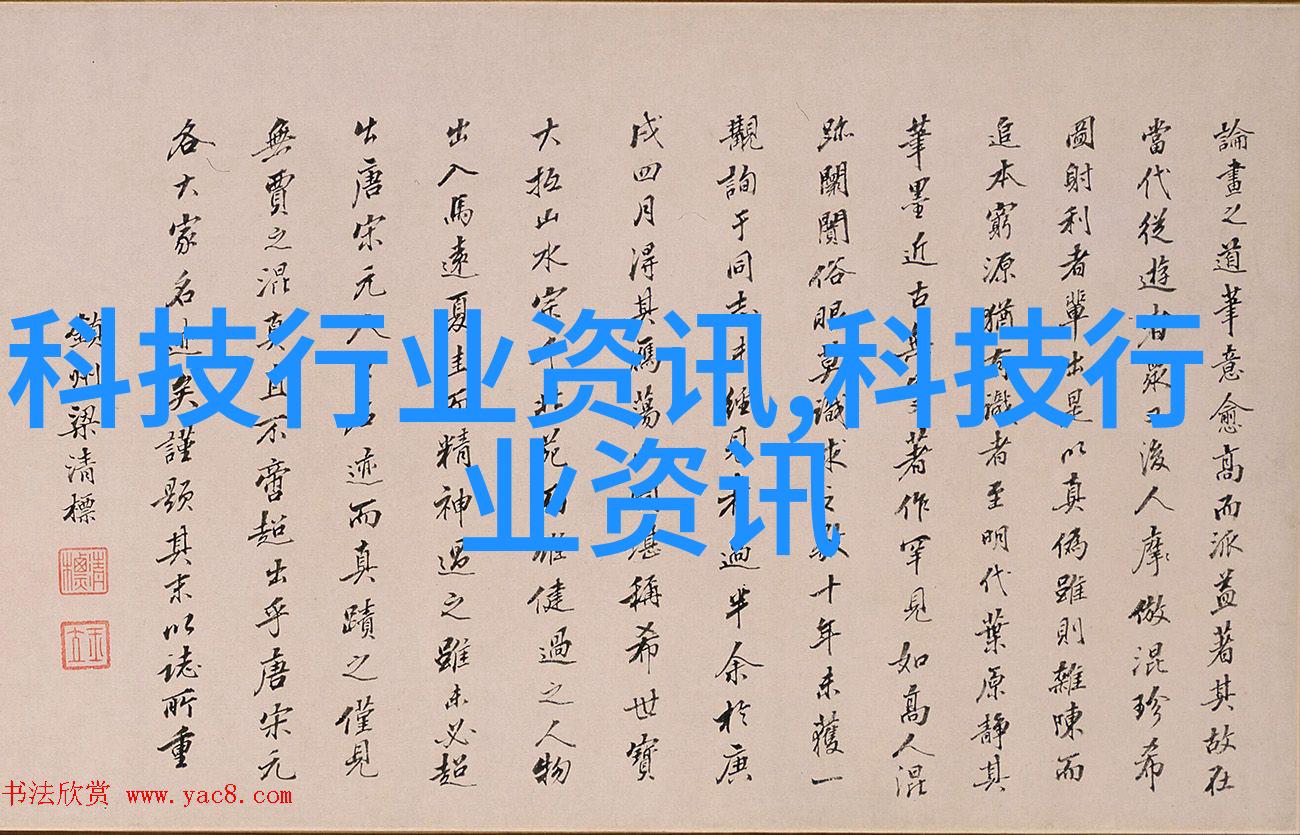 科技行业资讯,科技行
业资讯
論畫之道筆意愈高而派益著其故在
當代從遊者眾而後人摩倣混珍希
圖射利者輩出是以真偽雖則雜陳而
追本窮源猶有識者至明代葉原靜其
筆墨近古無著作罕見如高人混
跡闤闠俗眼莫識求之數十年未獲一
觀詢于同志未經見者過半余於庚
戌四月得其鴈蕩圖堪稱希世寶
大抵山水宗北苑而雄健過之人物
出入馬遠夏圭而精神過之雖未必超
出唐宋元人迹而真蹟之僅見
無賈之混真且不啻超出乎唐宋元
各大家名迹矣謹題其末以誌所重
梁清標
清標
書法欣赏 www.yac8.com